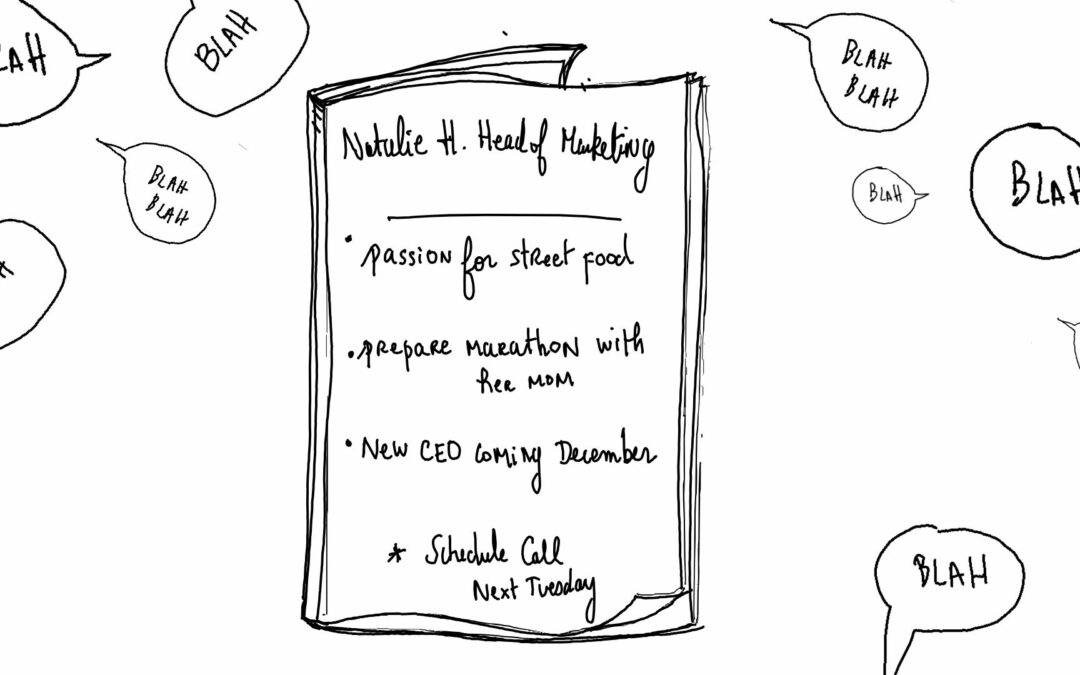 LAH
BLAH
BLAH
BLAH
BLAH
BLAH
BLAH
BLAH
Natalie H. Head of Marketing
• passion for street food
• prepare marathon with
her mom
• New CEO coming December
* Schedule Call
Next Tuesday
BLAH